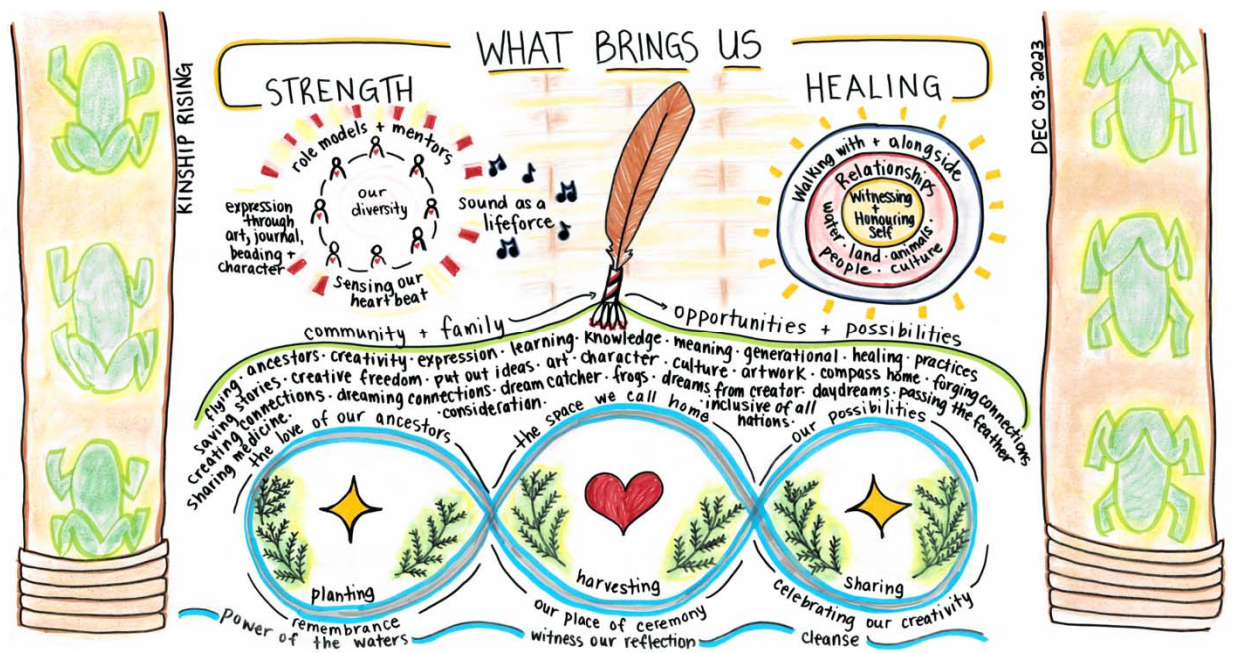 WHAT BRINGS US
STRENGTH
HEALING
KINSHIP RISING
DEC 03·2023
role models + mentors
our
diversity
expression
through
art, journal,
beading +
character
sensing our
heartbeat
sound as a
lifeforce
Walking with + alongside
Relationships
Witnessing
+
Honouring
Self
water · land · animals ·
people · culture
community + family
opportunities + possibilities
flying · ancestors · creativity · expression · learning · knowledge · meaning · generational · healing · practices
saving stories · creative freedom · put out ideas · art · character · culture · artwork · compass home · forging connections
creating connections · dreaming connections · dream catcher · frogs · dreams from creator · daydreams · passing the feather
sharing medicine · consideration · inclusive of all
nations ·
the love of our ancestors
the space we call home
our possibilities
planting
harvesting
sharing
remembrance
our place of ceremony
celebrating our creativity
power of the waters
witness our reflection
cleanse